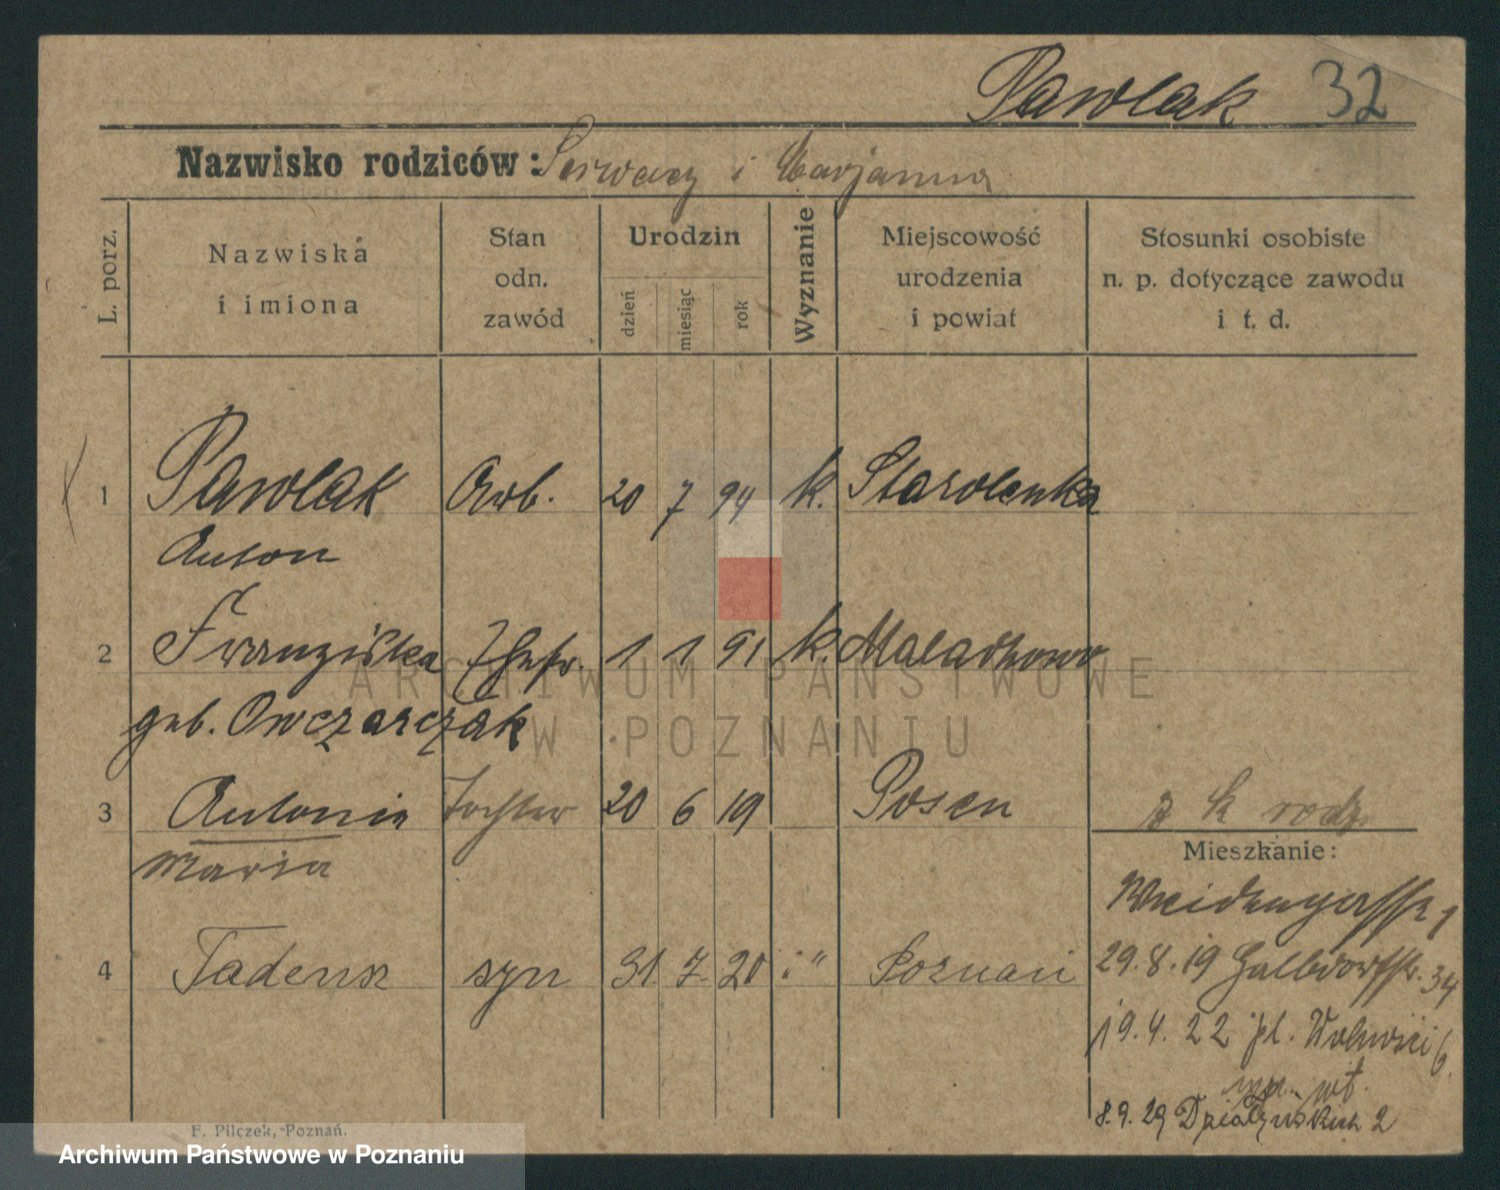 Pawlak 32
Nazwisko rodziców: Serwacy i Marjanna
L. porz.
Nazwiska
i imiona
Stan
odn.
zawód
Urodzin
dzień
miesiąc
rok
Wyznanie
Miejscowość
urodzenia
i powiat
Stosunki osobiste
n. p. dotyczące zawodu
i t. d.
1 Pawlak Arb. 20 7 94 k. Starolenka
Anton
2 Franziska Ehefr. 1 1 91 k.
geb. Owczarczak
3 Antonie Tochter 20 6 19 Posen
Maria
z k rodz.
Mieszkanie:
Weidengasse 1
4 Tadeusz syn 31 7 20 " Poznań
29.8.19 34
19.4.22 pl. Wolności 6
8.9.29 Działyńskich 2
F. Pilczek, Poznań.
ARCHIWUM PAŃSTWOWE
W POZNANIU
Archiwum Państwowe w Poznaniu